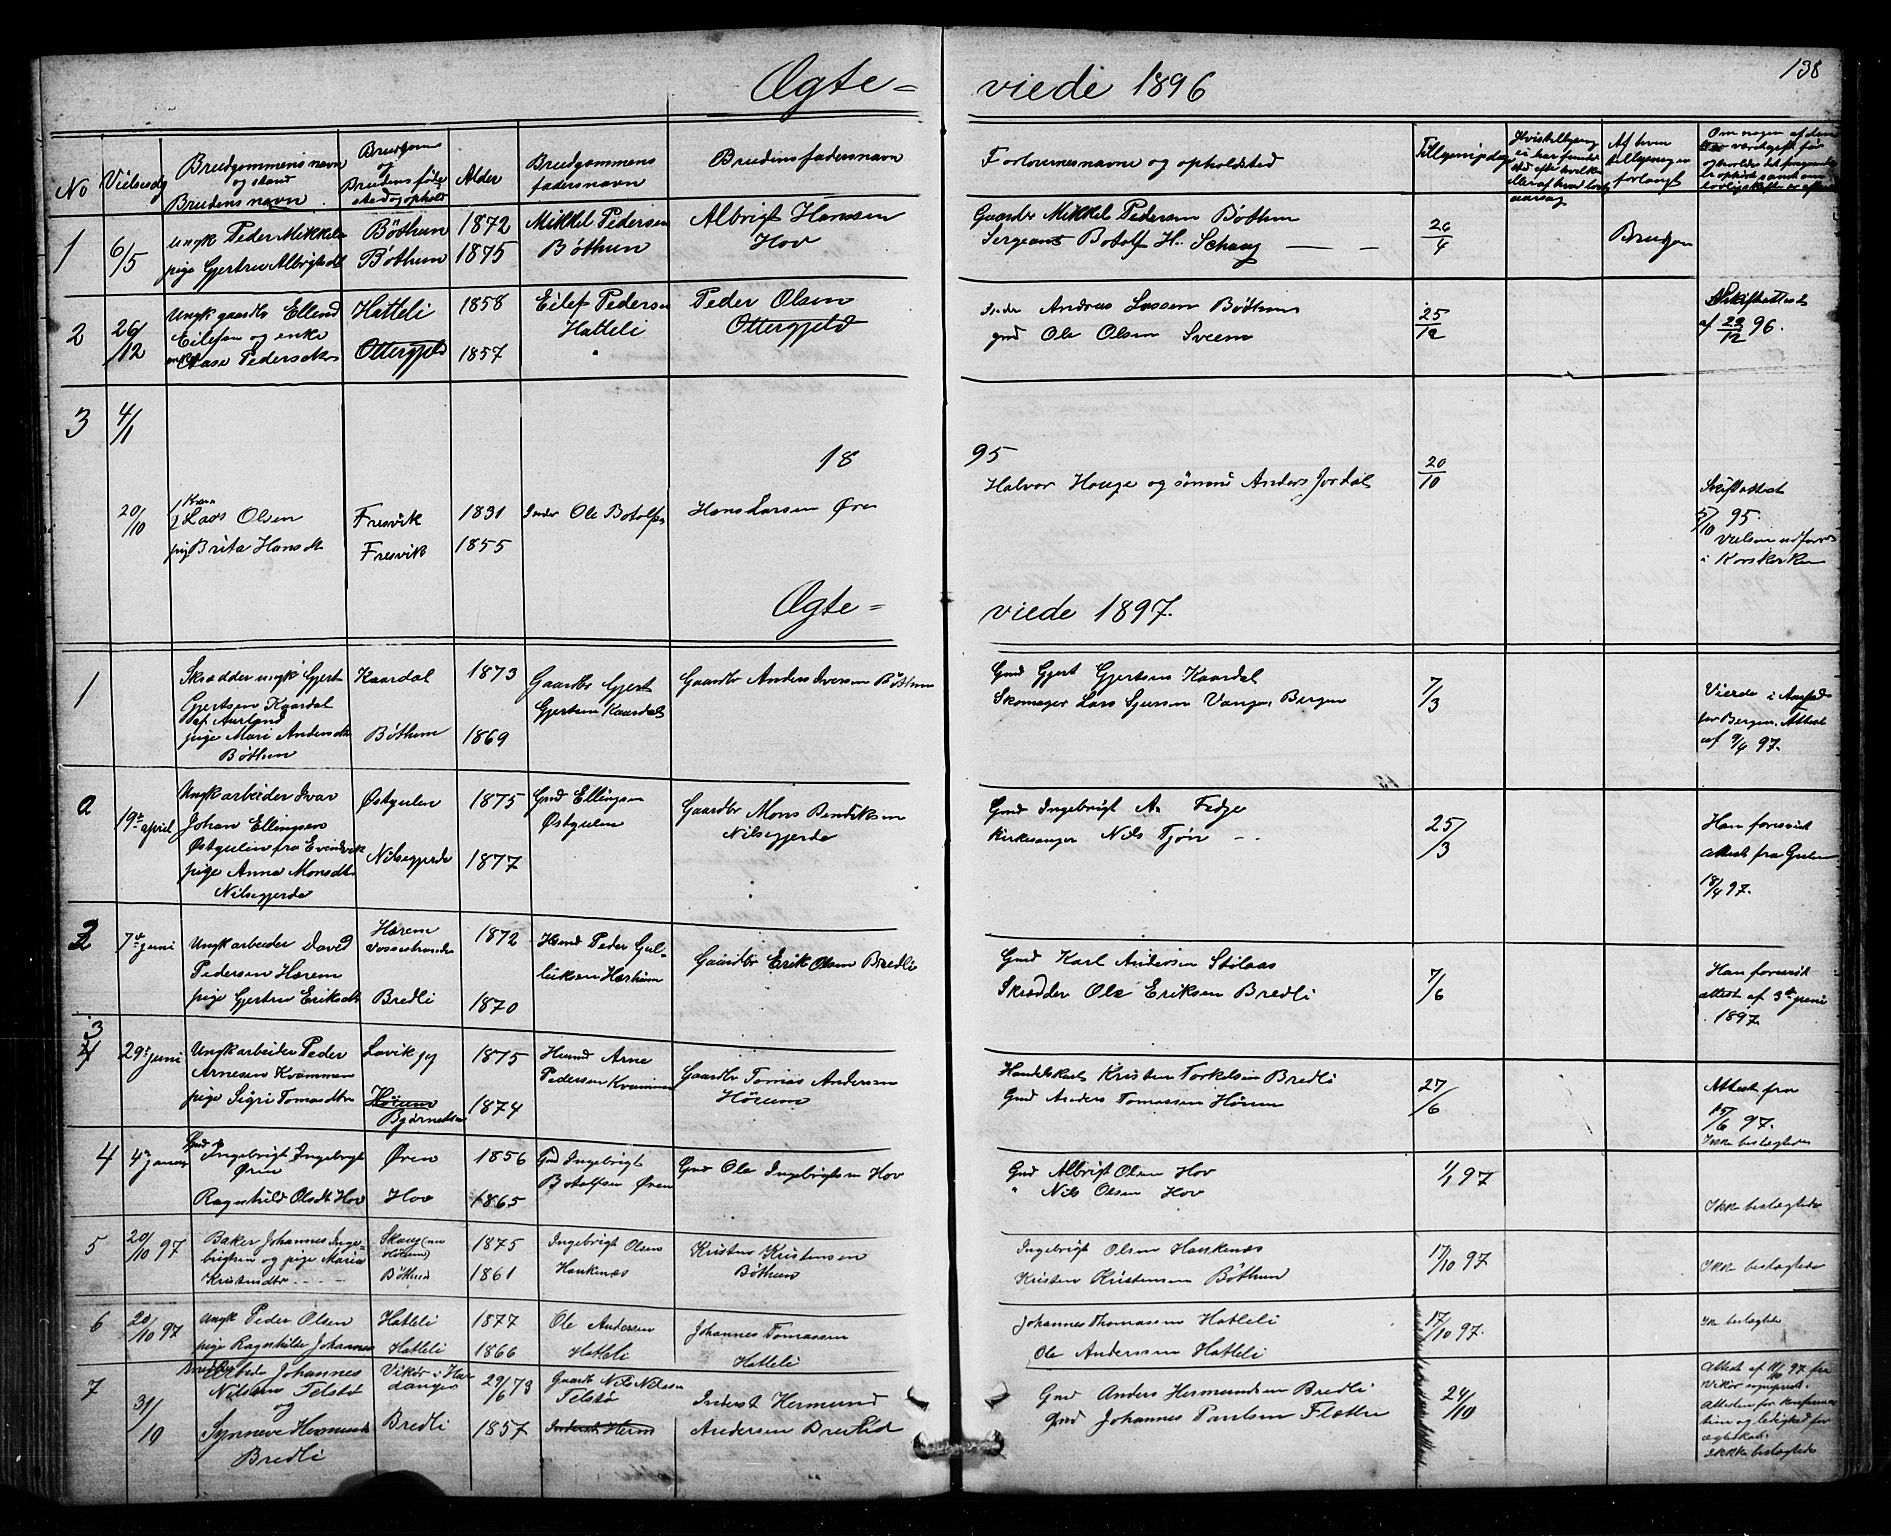 138
Ægte- viede 1896
No
Vielsesdg
Brudgommens navn og stand
Brudens navn
Brudgoms og Brudens føde-
Alder
Brudgommens fadersnavn
Brudens fadersnavn
Forlovernes navne og opholdsted
Tillysningsdag
Af hvem tillysning er forlangt
1
6/5
Ungk Peder Mikkels
pige Gjertru Albrigtsdt
Bøthun
Bøthun
1872
1875
Mikkel Pedersen
Bøthun
Albrigt Hanssen
Hov
Gaardbr Mikkel Pedersen Bøthun
Sergeant Botolf H. Schaug
26/4
Brudgom
2
26/12
Ungk gaardbr Ellend
Eilefsen og enke
Aase Pedersdtr
Hatleli
Ottergjeld
1858
1857
Eilef Pedersen
Hatleli
Peder Olsen
Ottergjeld
Inder Andras Lassen Bøthun
gmd Ole Olsen Sveen
25/12
Skifteattest
af 22/12 96.
3
4/1
18 95
20/10
Lars Olsen
pig Brita Hansdt
Fresvik
Fresvik
1831
1855
Inder Ole Botolfsen
Hans Larsen Øren
Halvor Hauge og sønnen Anders Jordal
20/10
Skifteattest
5/10 95.
Vielsen udført
i Korskirken
Ægte- viede 1897.
1
Skrædder ungk Gjert
Gjertsen Kaardal
af Aurland
pige Mari Andersdt
Bøthun
Kaardal
Bøthun
1873
1869
Gaardbr Gjert
Gjertsen Kaardal
Gaardbr Anders Iversen Bøthun
Gmd Gjert Gjertsen Kaardal
Skomager Lars Sjursen Vangen Bergen
7/3
Viede i
for Bergen. Attest
af 9/4 97.
2
19de april
Ungk arbeider Ivar
Johan Ellingsen
Østgulen fra Evindvik
pige Anna Monsdtr
Nilsegjerde
Østgulen
Nilsegjerde
1875
1877
Gmd Ellingsen
Østgulen
Gaardbr Mons Bendiksen
Nilsegjerde
Gmd Ingebrigt A. Fedje
Kirkesanger Nils Tjørn
25/3
Han foreviste
attest fra Gulen
18/4 97.
2
7de juni
Ungk arbeider David
Pedersen Hærem
pige Gjertru Eriksdt
Hærem
Vossestranden
Bredli
1872
1870
Hmd Peder Gul-
leiksen
Gaardbr Erik Olsen Bredli
Gmd Karl Andersen Stølaas
Skrædder Ole Eriksen Bredli
7/6
Han foreviste
attest af 3de juni
1897.
3
4
29de juni
Ungk arbeider Peder
Arnesen Kvammen
pige Sigri Tomasdtr
Lavik
Hørum
1875
1874
Husmd Arne
Pedersen Kvammen
Gaardbr Tomas Andersen
Høium
Handelskarl Kristen Torkelsen Bredli
Gmd Anders Tomassen Høium
27/6
Attest fra
15/6 97.
Ikke beslægtede
4
4de januar
Gmd Ingebrigt Ingebrigt
Øren
Ragnhild Olsdt Hov
Øren
Hov
1856
1865
Gmd Ingebrigt
Botolfsen Øren
Gmd Ole Ingebrigtsen Hov
Gmd Albrigt Olsen Hov
" Nils Olsen Hov
1/1 97
Ikke beslægtede
5
20/10 97
Baker Johannes Inge-
brigtsen og pige Maria
Kristensdtr
Skaug (nu
Høium)
Bøthun
1875
1861
Ingebrigt Olsen
Haukenæs
Kristen Kristensen
Bøthun
Ingebrigt Olsen Haukenæs
Kristen Kristensen Bøthun
17/10 97
Ikke beslægtede
6
20/10 97
Ungk Peder Olsen
pige Ragnhilde Johannes
Hatleli
Hatleli
1877
1866
Ole Andersen
Hatleli
Johannes Tomassen
Hatleli
Johannes Thomassen Hatleli
Ole Anderssen Hatleli
17/10 97.
Ik beslægtede
7
31/10
Arbeider Johannes
Nilsen Telstø
og
Synneve Hermunds
Bredli
Vikør i Har
danger
Bredli
29/6 73
1857
Gaardb Nils Nilsen
Telstø
Inderst Herm
Inderst Hermund
Andersen Bredlid
Gmd Anders Hermundsen Bredli
Gmd Johannes Paulsen Flatlie
24/10
Attest af 11/10 97 fra
Vikør sognepræst.
Attesten for konferma
tion og ledighed for
ægteskab.
Ikke beslægtede